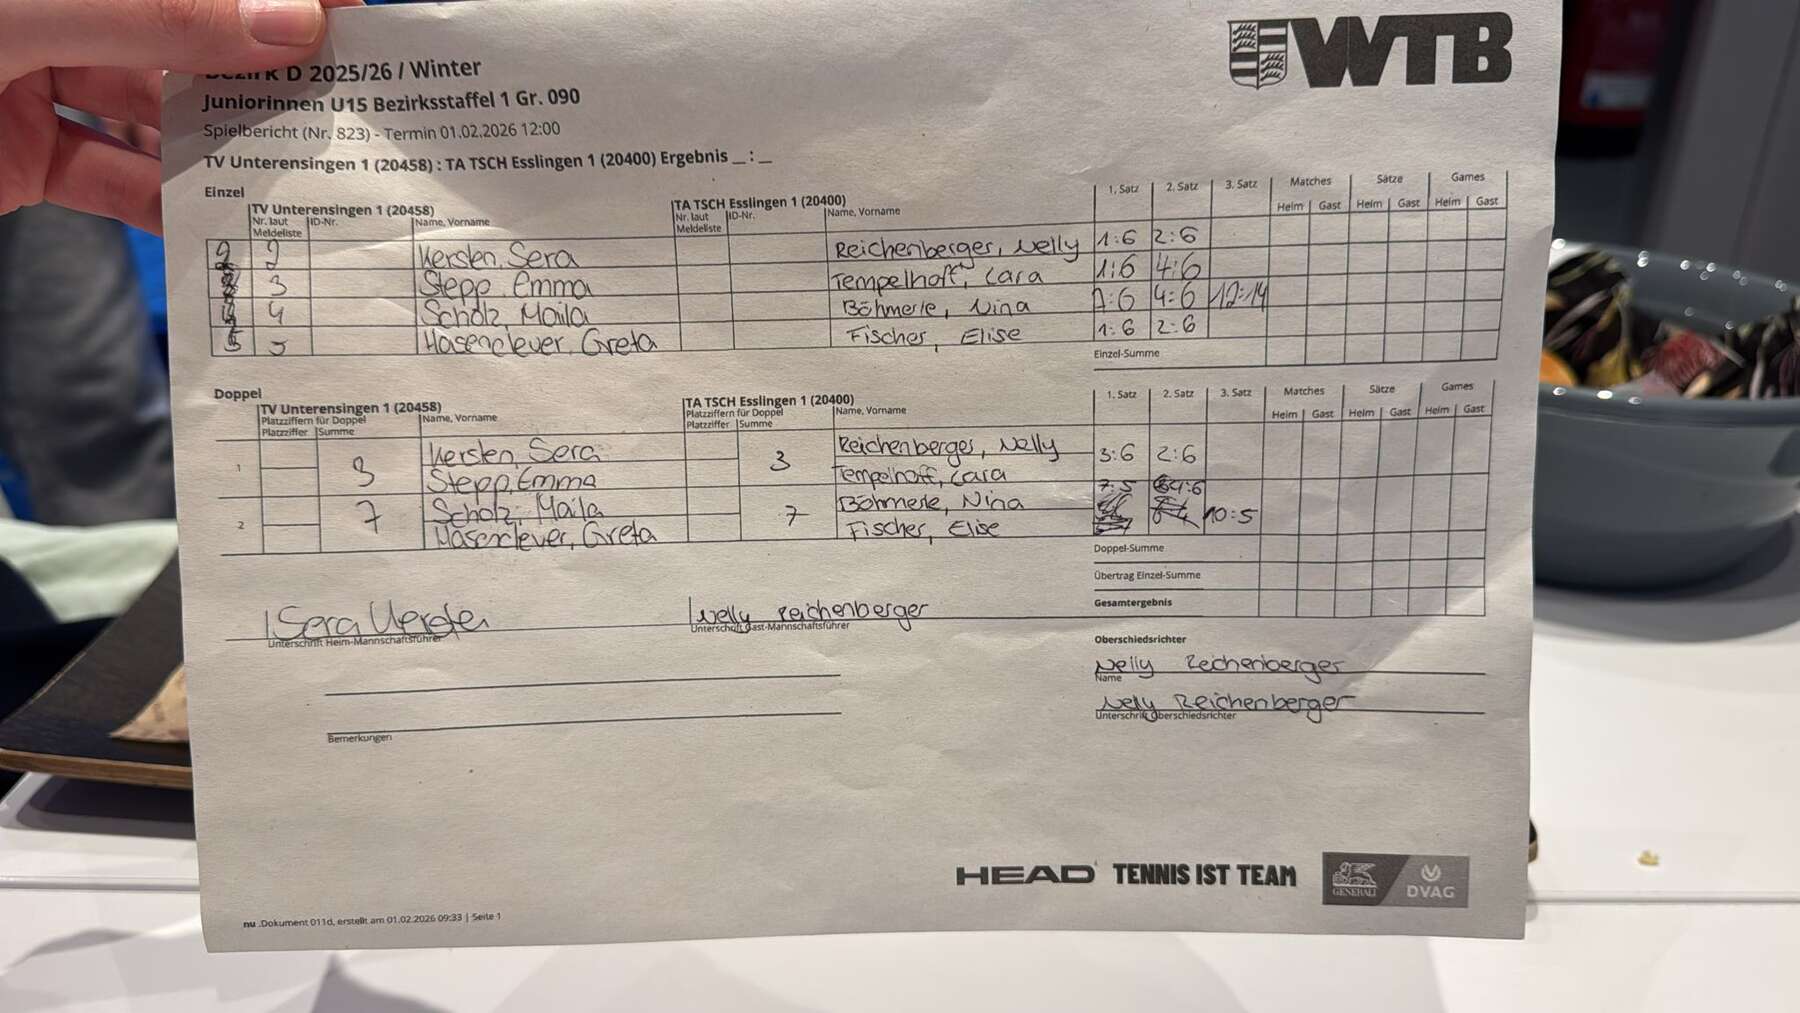 Bezirk D 2025/26 / Winter
WTB
Juniorinnen U15 Bezirksstaffel 1 Gr. 090
Spielbericht (Nr. 823) - Termin 01.02.2026 12:00
TV Unterensingen 1 (20458) : TA TSCH Esslingen 1 (20400) Ergebnis _ : _
Einzel
TV Unterensingen 1 (20458) TA TSCH Esslingen 1 (20400) 1. Satz 2. Satz 3. Satz Matches Sätze Games
Nr. laut Meldeliste ID-Nr. Name, Vorname Nr. laut Meldeliste ID-Nr. Name, Vorname Heim Gast Heim Gast Heim Gast
2 2 Kersten, Sera Reichenberger, Nelly 1:6 2:6
3 Stepp, Emma Tempelhoff, Cara 1:6 4:6
4 4 Scholz, Maila Böhmerle, Nina 7:6 4:6 12:14
5 5 Hasenclever, Greta Fischer, Elise 1:6 2:6
Einzel-Summe
Doppel
TV Unterensingen 1 (20458) TA TSCH Esslingen 1 (20400) 1. Satz 2. Satz 3. Satz Matches Sätze Games
Platzziffern für Doppel Name, Vorname Platzziffern für Doppel Name, Vorname
Platzziffer Summe Platzziffer Summe Heim Gast Heim Gast Heim Gast
1 3 Kersten, Sera 3 Reichenberger, Nelly 3:6 2:6
Stepp, Emma Tempelhoff, Cara
2 7 Scholz, Maila 7 Böhmerle, Nina 7:5 4:6 10:5
Hasenclever, Greta Fischer, Elise
Doppel-Summe
Übertrag Einzel-Summe
Gesamtergebnis
Sera Kersten Nelly Reichenberger
Unterschrift Heim-Mannschaftsführer Unterschrift Gast-Mannschaftsführer
Oberschiedsrichter
Nelly Reichenberger
Name
Nelly Reichenberger
Unterschrift Oberschiedsrichter
Bemerkungen
HEAD TENNIS IST TEAM GENERALI DVAG
nu .Dokument 011d, erstellt am 01.02.2026 09:33 | Seite 1